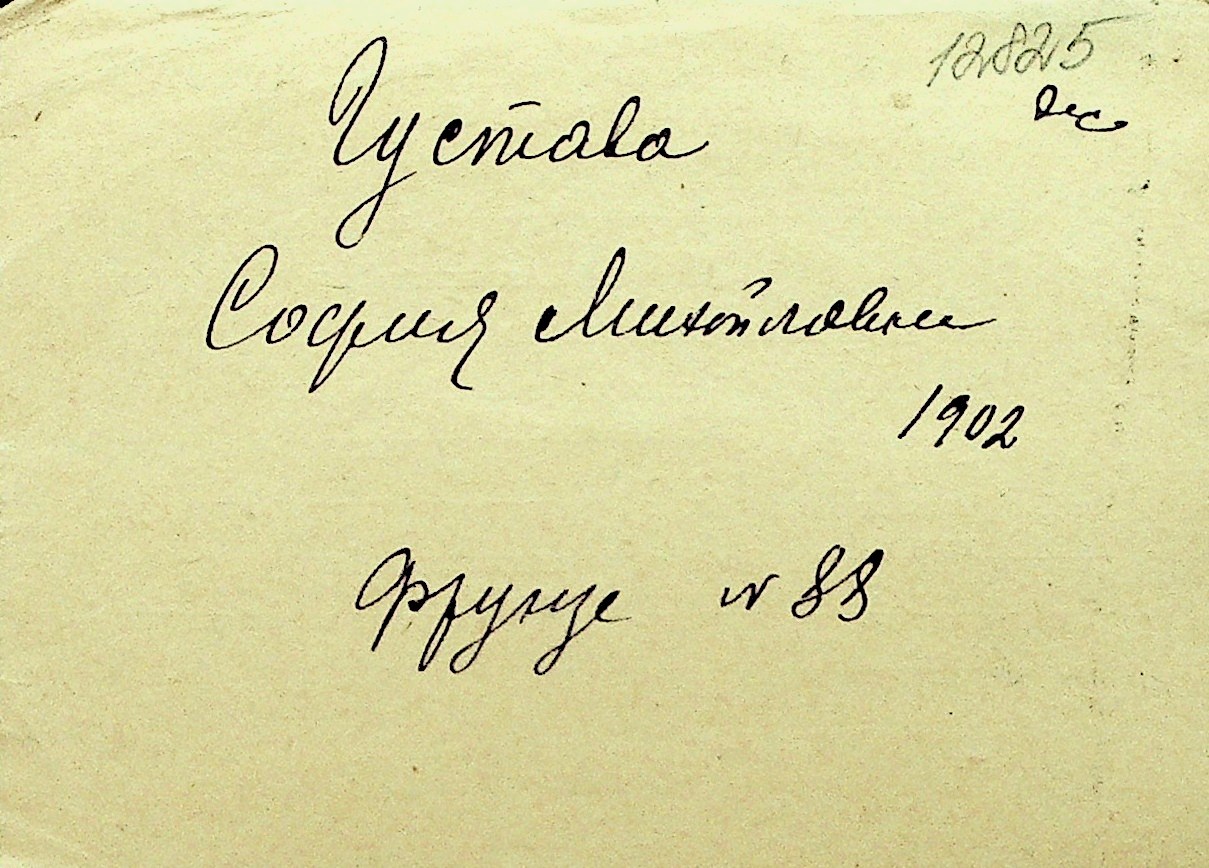 12825
Густава
София Михайловни
1902
Фрунзе № 88